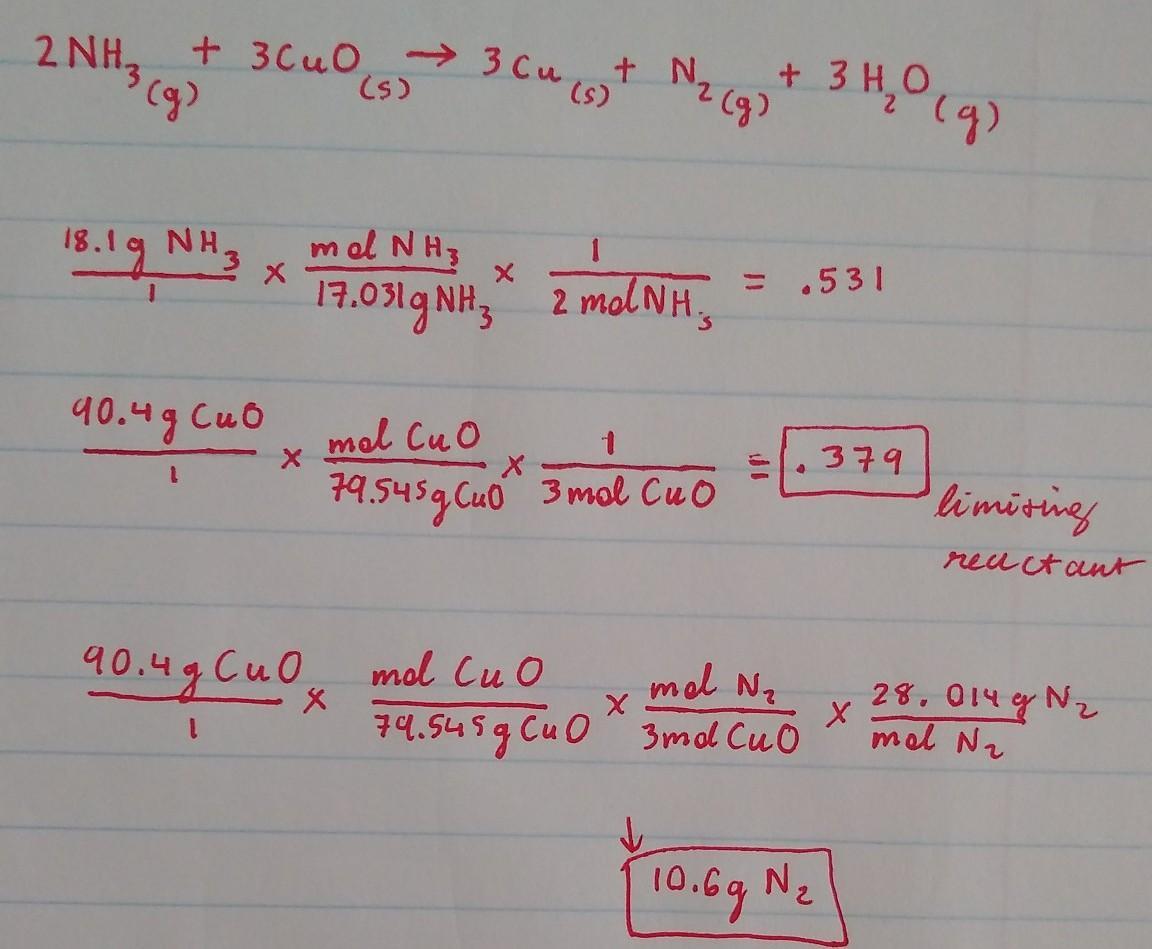 2NH₃(g) + 3CuO(s) → 3Cu(s) + N₂(g) + 3H₂O(g)
18.1g NH₃/1 x mol NH₃/17.031g NH₃ x 1/2 mol NH₃ = .531
90.4g CuO/1 x mol CuO/79.545g CuO x 1/3 mol CuO = .379
limiting
reactant
90.4g CuO/1 x mol CuO/79.545g CuO x mol N₂/3mol CuO x 28.014g N₂/mol N₂
↓
10.6g N₂